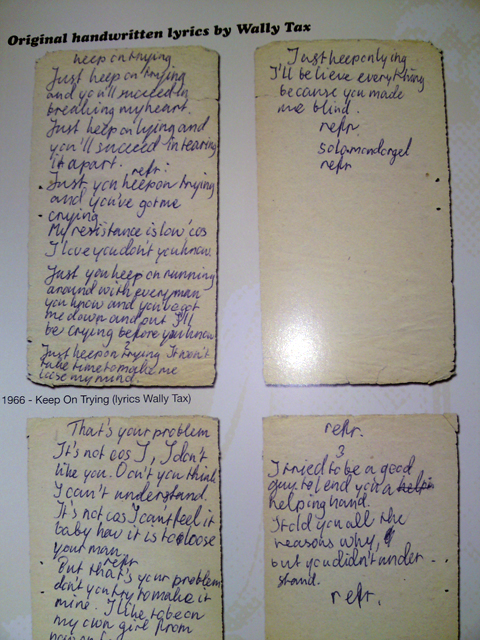 Original handwritten lyrics by Wally Tax
keep on trying
Just keep on trying
and you'll succeed in
breaking my heart.
Just keep on lying and
you'll succeed in tearing
it apart. refr.
Just you keep on trying
and you've got me
crying
My resistance is low 'cos
I love you don't you know.
Just you keep on running
around with every man
you know and you've got
me down and out I'll
be crying before you know
2
Just keep on trying It won't
take time to make me
lose my mind.
Just keep on lying
I'll believe everything
because you made
me blind.
refr.
solo mondorgel
refr
1966 - Keep On Trying (lyrics Wally Tax)
That's your problem
It's not cos I, I don't
like you. Don't you think
I can't understand.
It's not cos I can't feel it
baby how it is to loose
your man.
refr
But that's your problem
don't you try to make it
mine. I like to be on
my own girl from
now on
refr.
3
I tried to be a good
guy. to lend you a help
helping hand.
I told you all the
reasons why,
but you didn't under
stand.
refr.